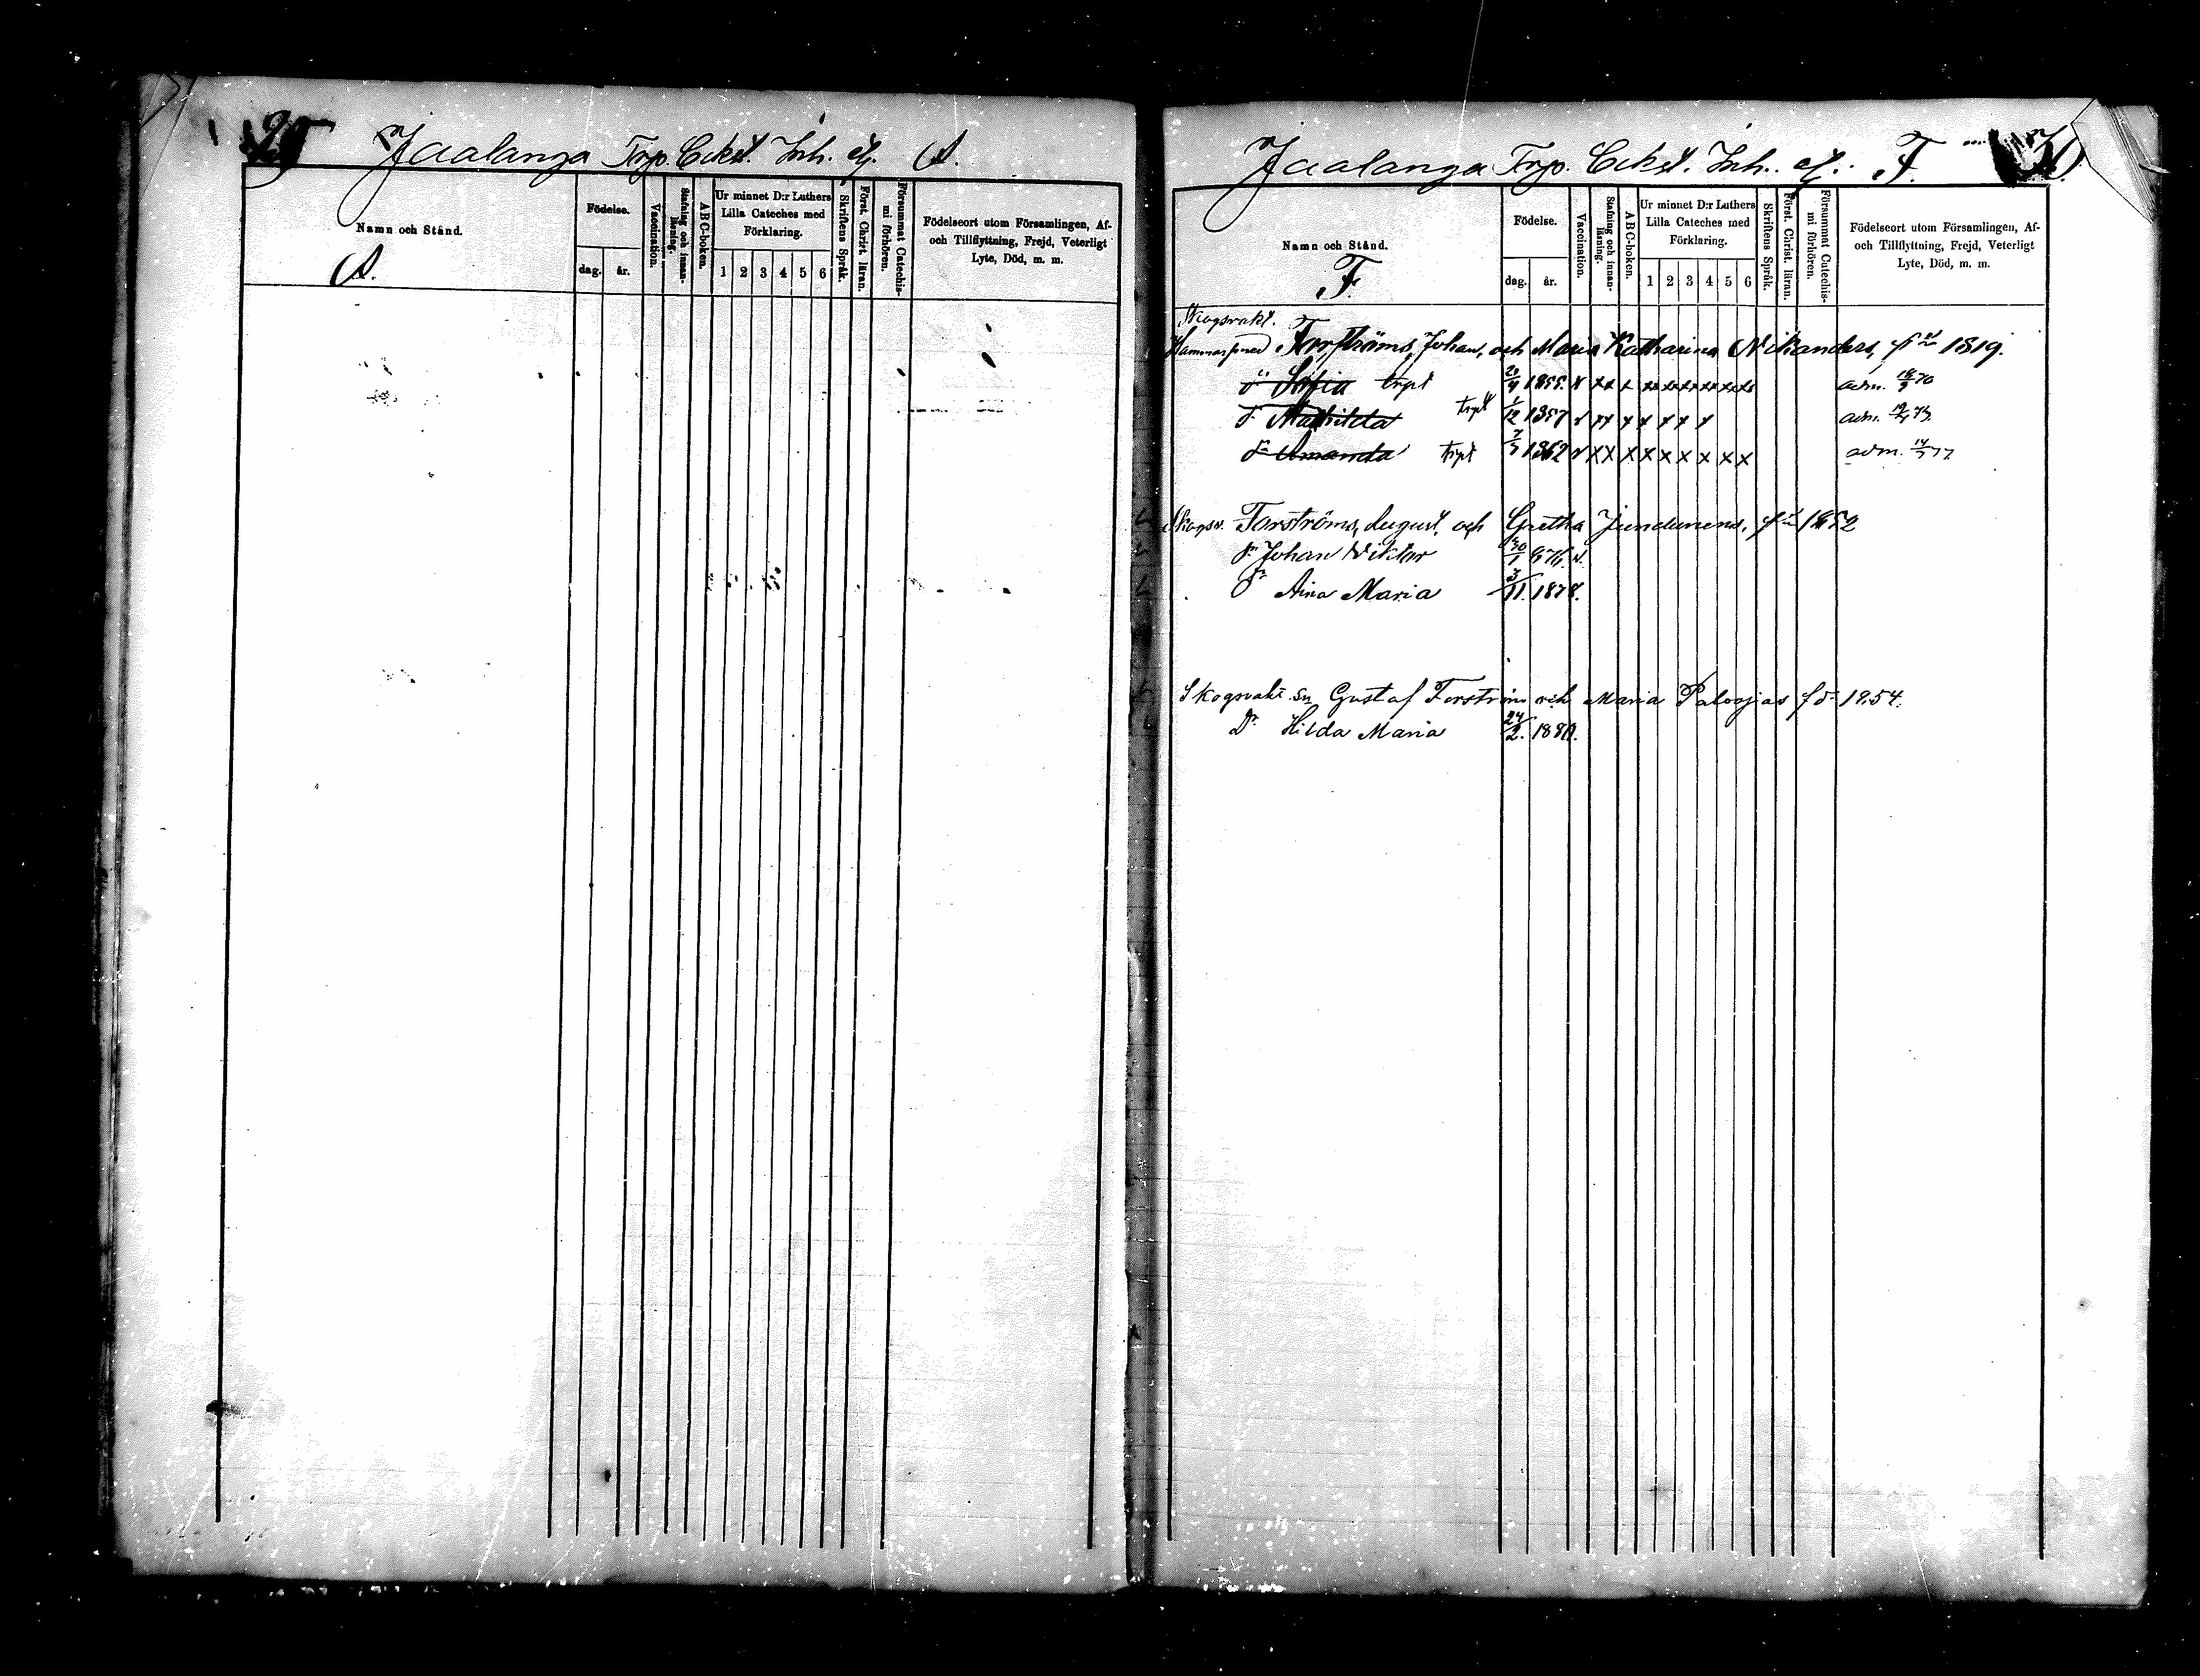 29
Jaalanga Trp. Eckst. Inh. etc. A.
Namn och Stånd.
A.
Födelse.
dag. år.
Vaccination.
Stafning och innan-läsning.
ABC-boken.
Ur minnet D:r Luthers
Lilla Cateches med
Förklaring.
1 2 3 4 5 6
Skriftens Språk.
Först. Christ. läran.
Försummat Catechis-mi förhören.
Födelseort utom Församlingen, Af-
och Tillflyttning, Frejd, Veterligt
Lyte, Död, m. m.
Jaalanga Trp. Eckst. Inh. etc. F. 30.
Namn och Stånd.
F.
Födelse.
dag. år.
Vaccination.
Stafning och innan-läsning.
ABC-boken.
Ur minnet D:r Luthers
Lilla Cateches med
Förklaring.
1 2 3 4 5 6
Skriftens Språk.
Först. Christ. läran.
Försummat Catechis-mi förhören.
Födelseort utom Församlingen, Af-
och Tillflyttning, Frejd, Veterligt
Lyte, Död, m. m.
Skogsvakt.
Torströms, Johan, och Maria Katharina Nikanders, fd 1819.
dr Sofia trpt 1855. adm. 70
dr Mathilda trpt 1/12 1857 adm.
dr Amanda trpt 1862 adm. 77
Skogsv. Torströms, August, och Gretha f 1852
Sn Johan Wiktor
Dr Aina Maria 3/11. 1878.
Skogsvakt Sn Gustaf Forström och Maria Palvojas fd 1854.
Dr Hilda Maria 24/2. 1880.